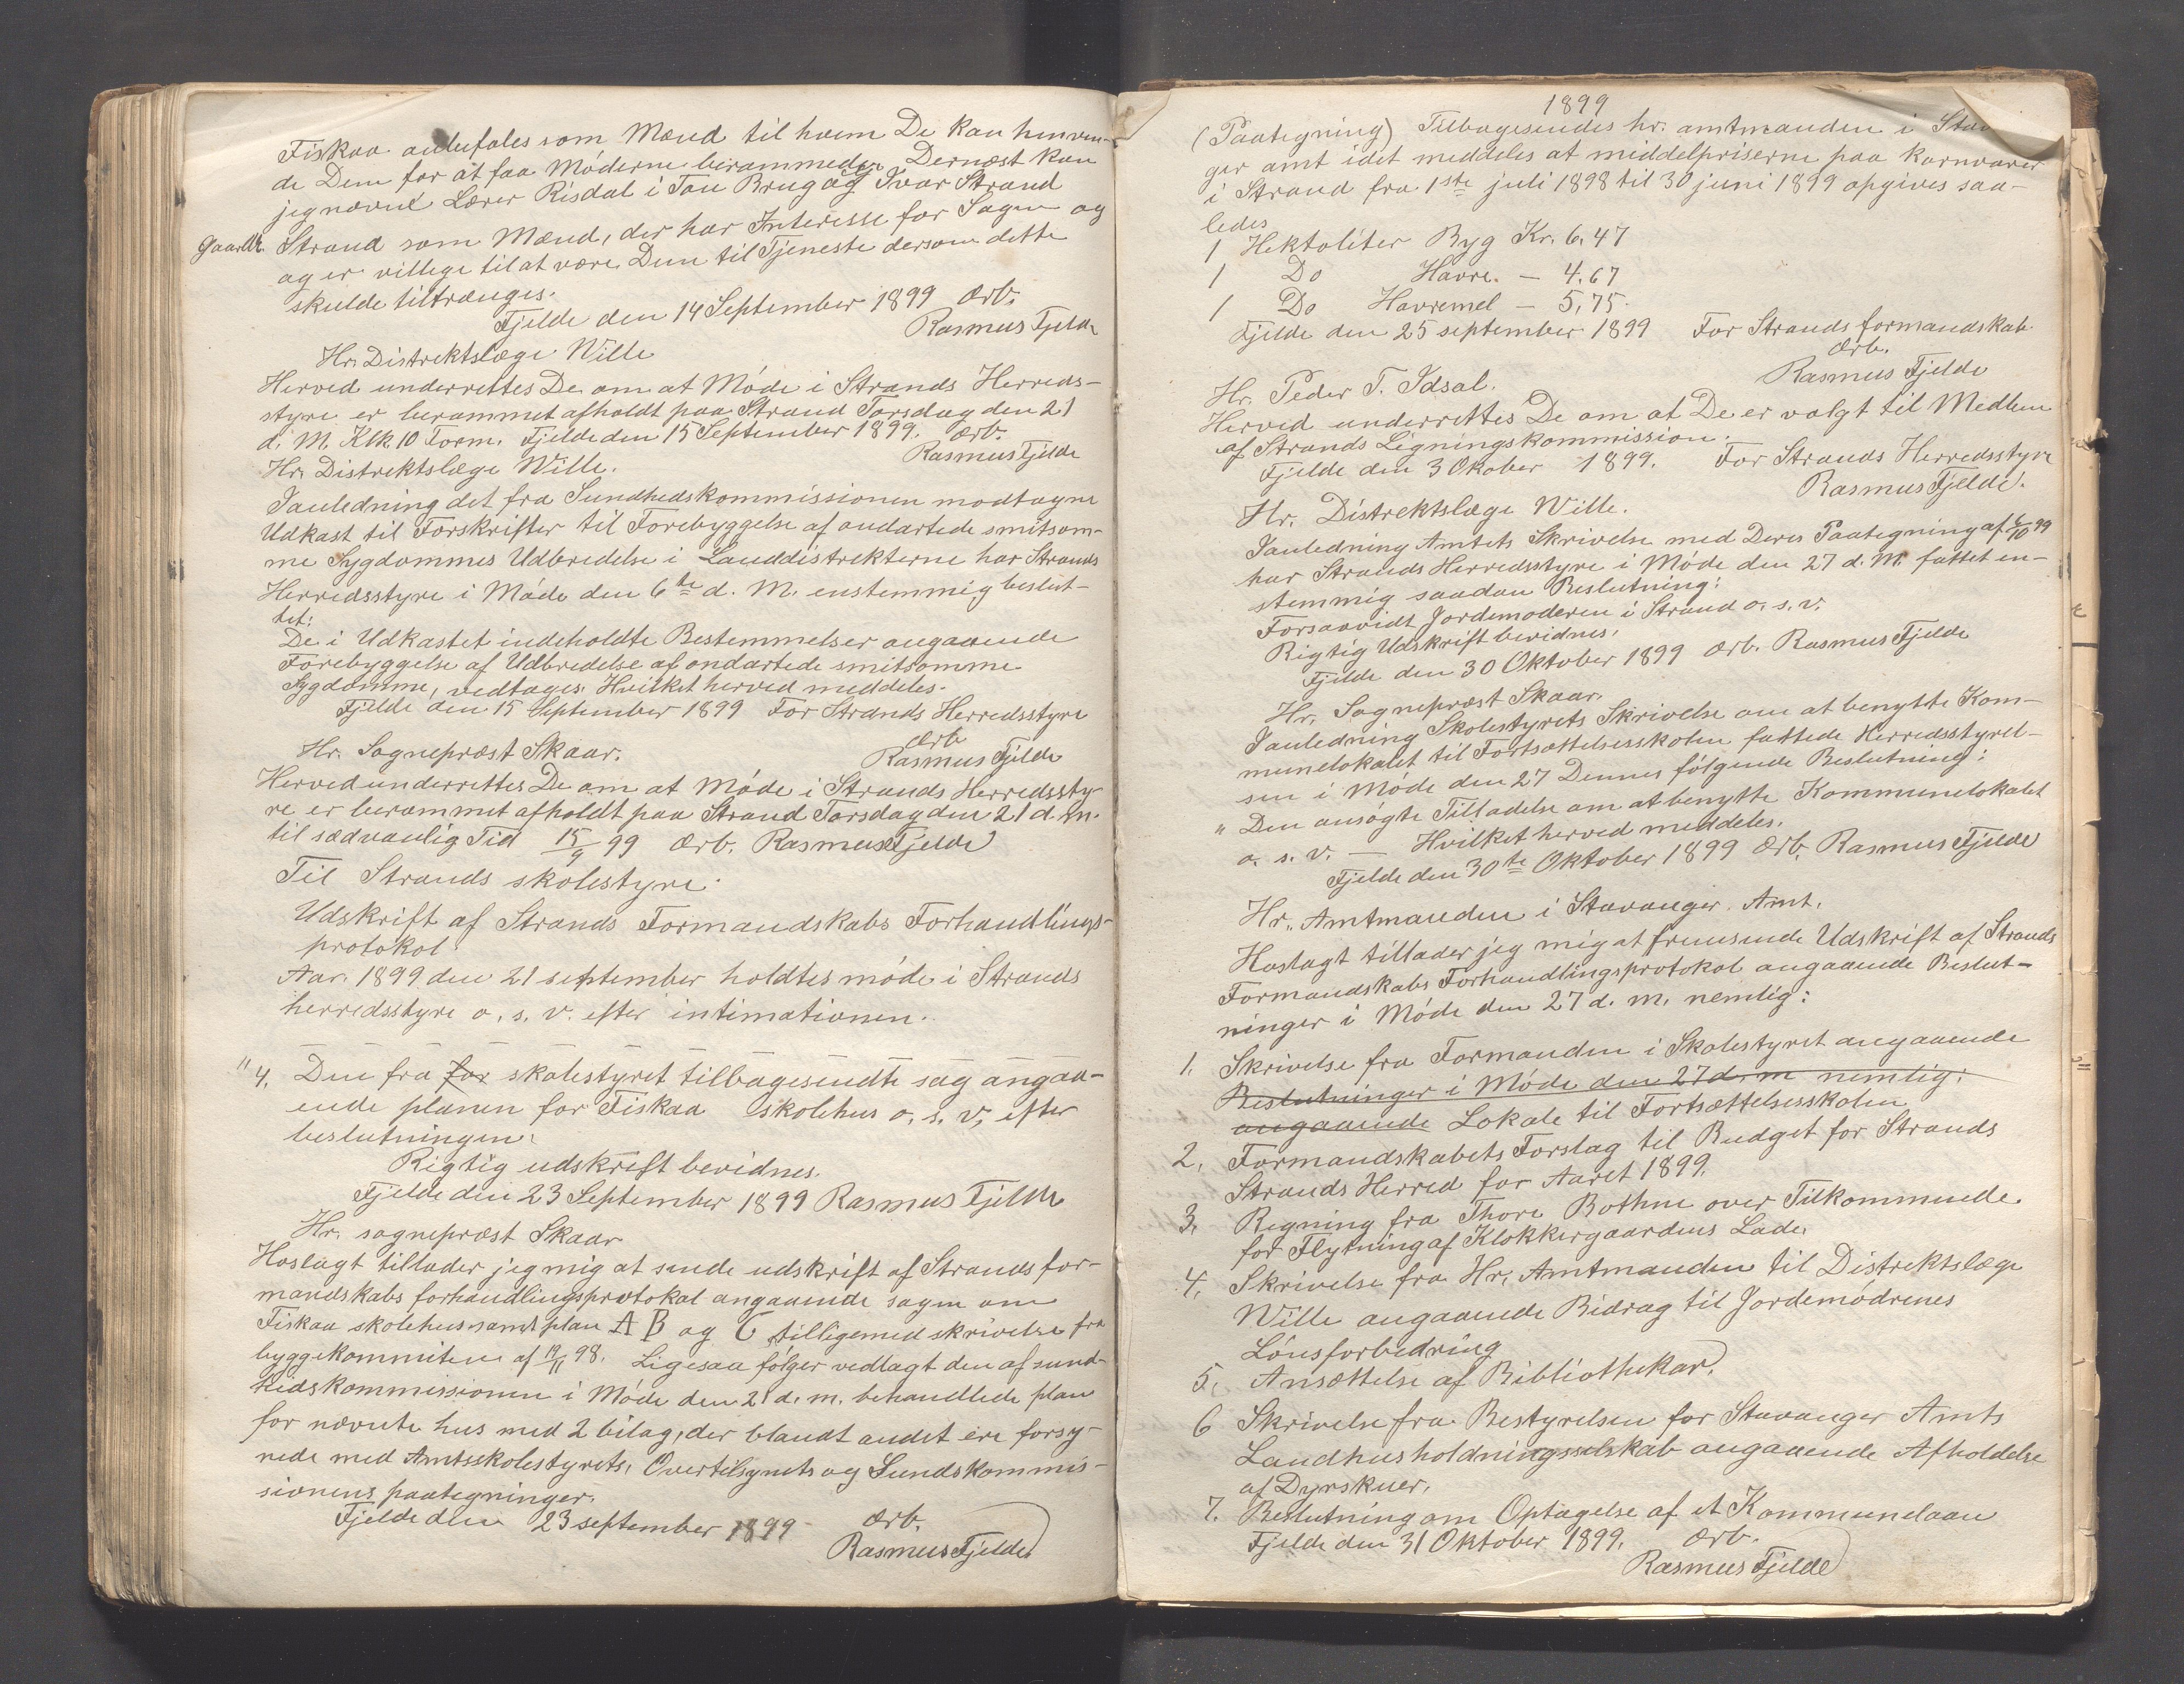 Fiskaa anbefales som Mænd til hvem De kan henven-
de Dem for at faa Møderne berammede. Dernæst kan
jeg nævne Lærer Risdal i Tau Brug og Ivar Strand
Gaardbr. Strand som Mænd, der har Interesse for Sagen og
og er villige til at være Dem til Tjeneste dersom dette
skulde tiltrænges.
Fjelde den 14 September 1899 Ærb.
Rasmus Fjelde
Hr. Distriktslæge Wille
Herved underrettes De om at Møde i Strands Herreds-
styre er berammet afholdt paa Strand Torsdag den 21
d. M. Klk. 10 Form. Fjelde den 15 September 1899. Ærb.
Rasmus Fjelde
Hr. Distriktslæge Wille.
Ianledning det fra Sundhedskommissionen modtagne
Udkast til Forskrifter til Forebyggelse af ondartede smitsom-
me Sygdommes Udbredelse i Landdistrikterne har Strands
Herredsstyre i Møde den 6te d. M. enstemmig beslut-
tet:
De i Udkastet indeholdte Bestemmelser angaaende
Forebyggelse af Udbredelse af ondartede smitsomme
Sygdomme, vedtages. Hvilket herved meddeles.
Fjelde den 15 September 1899 For Strands Herredsstyre
Ærb
Hr. Sognepræst Skaar.
Rasmus Fjelde
Herved underrettes De om at Møde i Strands Herredssty-
re er berammet afholdt paa Strand Torsdag den 21 d. Mn.
til sædvanlig Tid 15/9 99 Ærb. Rasmus Fjelde
Til Strands skolestyre.
Udskrift af Strands Formandskabs Forhandlings-
protokol
Aar 1899 den 21 september holdtes møde i Strands
herredsstyre o. s. v. efter intimationen.
" 4. Den fra for skolestyret tilbagesendte sag angaa-
ende planen for Fiskaa skolehus o. s. v. efter
beslutningen.
Rigtig udskrift bevidnes.
Fjelde den 23 September 1899 Rasmus Fjelde
Hr. sognepræst Skaar
Hoslagt tillader jeg mig at sende udskrift af Strands for-
mandskabs forhandlingsprotokol angaaende sagen om
Fiskaa skolehus samt plan A B og C tilligemed skrivelse fra
byggekommiteen af 19/11 98. Ligesaa følger vedlagt den af sund-
hedskommissionen i Møde den 21 d. m. behandlede plan
for nævnte hus med 2 bilag, der blandt andet ere forsy-
nede med Amtsskolestyrets, Overtilsynets og Sundskommis-
sionens paategninger.
Fjelde den 23 september 1899 Ærb.
Rasmus Fjelde
1899
(Paategning) Tilbagesendes hr. amtmanden i Stav
ger amt idet meddeles at middelpriserne paa kornvarer
i Strand fra 1ste juli 1898 til 30 juni 1899 opgives saa-
ledes
1 Hektoliter Byg Kr. 6,47
1 Do Havre. — 4.67
1 Do Havremel — 5,75.
Fjelde den 25 september 1899 For Strands formandskab
Ærb.
Rasmus Fjelde
Hr. Peder T. Idsal.
Herved underrettes De om at De er valgt til Medlem
af Strands Ligningskommission.
Fjelde den 3 Okober 1899. For Strands Herredsstyre
Rasmus Fjelde.
Hr. Distrektslæge Wille.
Ianledning Amtets Skrivelse med Deres Paategning af /10 99
har Strands Herredsstyre i Møde den 27 d. M. fattet en-
stemmig saadan Beslutning:
Forsaavidt Jordemoderen i Strand o. s. v.
Rigtig Udskrift bevidnes.
Fjelde den 30 Oktober 1899 Ærb. Rasmus Fjelde
Hr. Sognepræst Skaar.
Ianledning Skolestyrets Skrivelse om at benytte Kom-
munelokalet til Fortsættelsesskolen fattede Herredsstyrel-
sen i Møde den 27 Dennes følgende Beslutning:
" Den ansøgte Tilladelse om at benytte Kommunelokalet
o. s. v. — Hvilket herved meddeles.
Fjelde den 30te Oktober 1899 Ærb. Rasmus Fjelde
Hr. Amtmanden i Stavanger Amt.
Hoslagt tillader jeg mig at fremsende Udskrift af Strands
Formandskabs Forhandlingsprotokol angaaende Beslut-
ninger i Møde den 27 d. m. nemlig:
1. Skrivelse fra Formanden i Skolestyret angaaende
Beslutninger i Møde den 27 d. m nemlig:
angaaende Lokale til Fortsættelsesskolen
2. Formandskabets Forslag til Budget for Strands
Strands Herred for Aaret 1899.
3. Regning fra Thore Bothne over Tilkommende
for Flytning af Klokkergaardens Lade.
4. Skrivelse fra Hr. Amtmanden til Distriktslæge
Wille angaaende Bidrag til Jordemødrenes
Lønsforbedring
5. Ansættelse af Bibliothekar.
6 Skrivelse fra Bestyrelsen for Stavanger Amts
Landhusholdningsselskab angaaende Afholdelse
af Dyrskuer.
7. Beslutning om Optagelse af et Kommunelaan
Fjelde den 31 Oktober 1899. Ærb.
Rasmus Fjelde